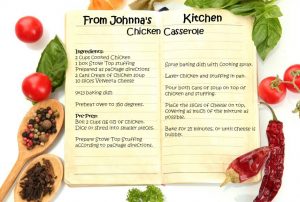 From Johnna's Kitchen
Chicken Casserole
Ingredients:
2 cups Cooked Chicken
1 box Stove Top Stuffing
Prepared as package directions
2 cans Cream of Chicken Soup
10 slices Velveeta Cheese
9x13 baking dish
Preheat oven to 350 degrees.
Pre Prep:
Boil 2 cups
Dice or shred into smaller pieces.
Prepare Stove Top Stuffing
according to package directions.
Spray baking dish with cooking spray.
Layer chicken and stuffing in pan.
Pour both cans of soup on top
of chicken and stuffing.
Place the slices of cheese on top,
covering as much of the mixture
as possible.
Bake for 25 minutes, or until cheese is
bubbly.